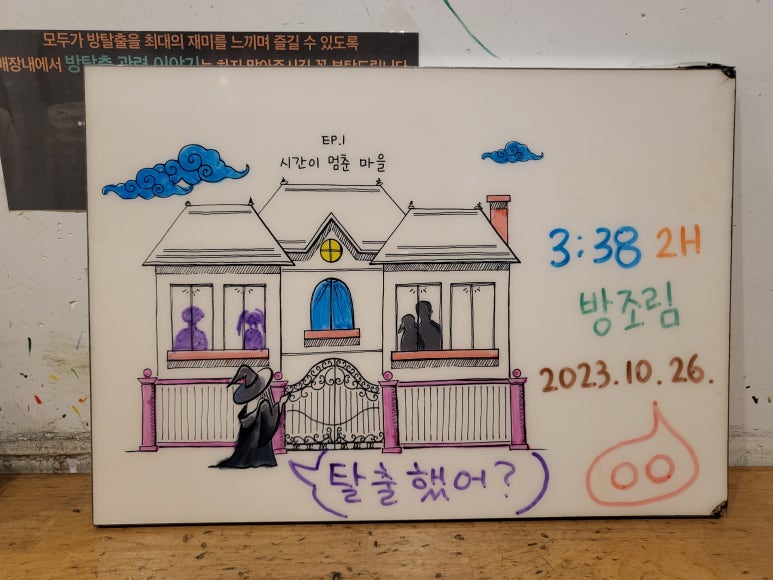 모두가 방탈출을 최대의 재미를 느끼며 즐길 수 있도록
매장내에서 방탈출 관련 이야기는 하지 말아주시길 꼭 부탁드립니다
EP.1
시간이 멈춘 마을
3:38 2H
방조림
2023.10.26.
탈출했어?